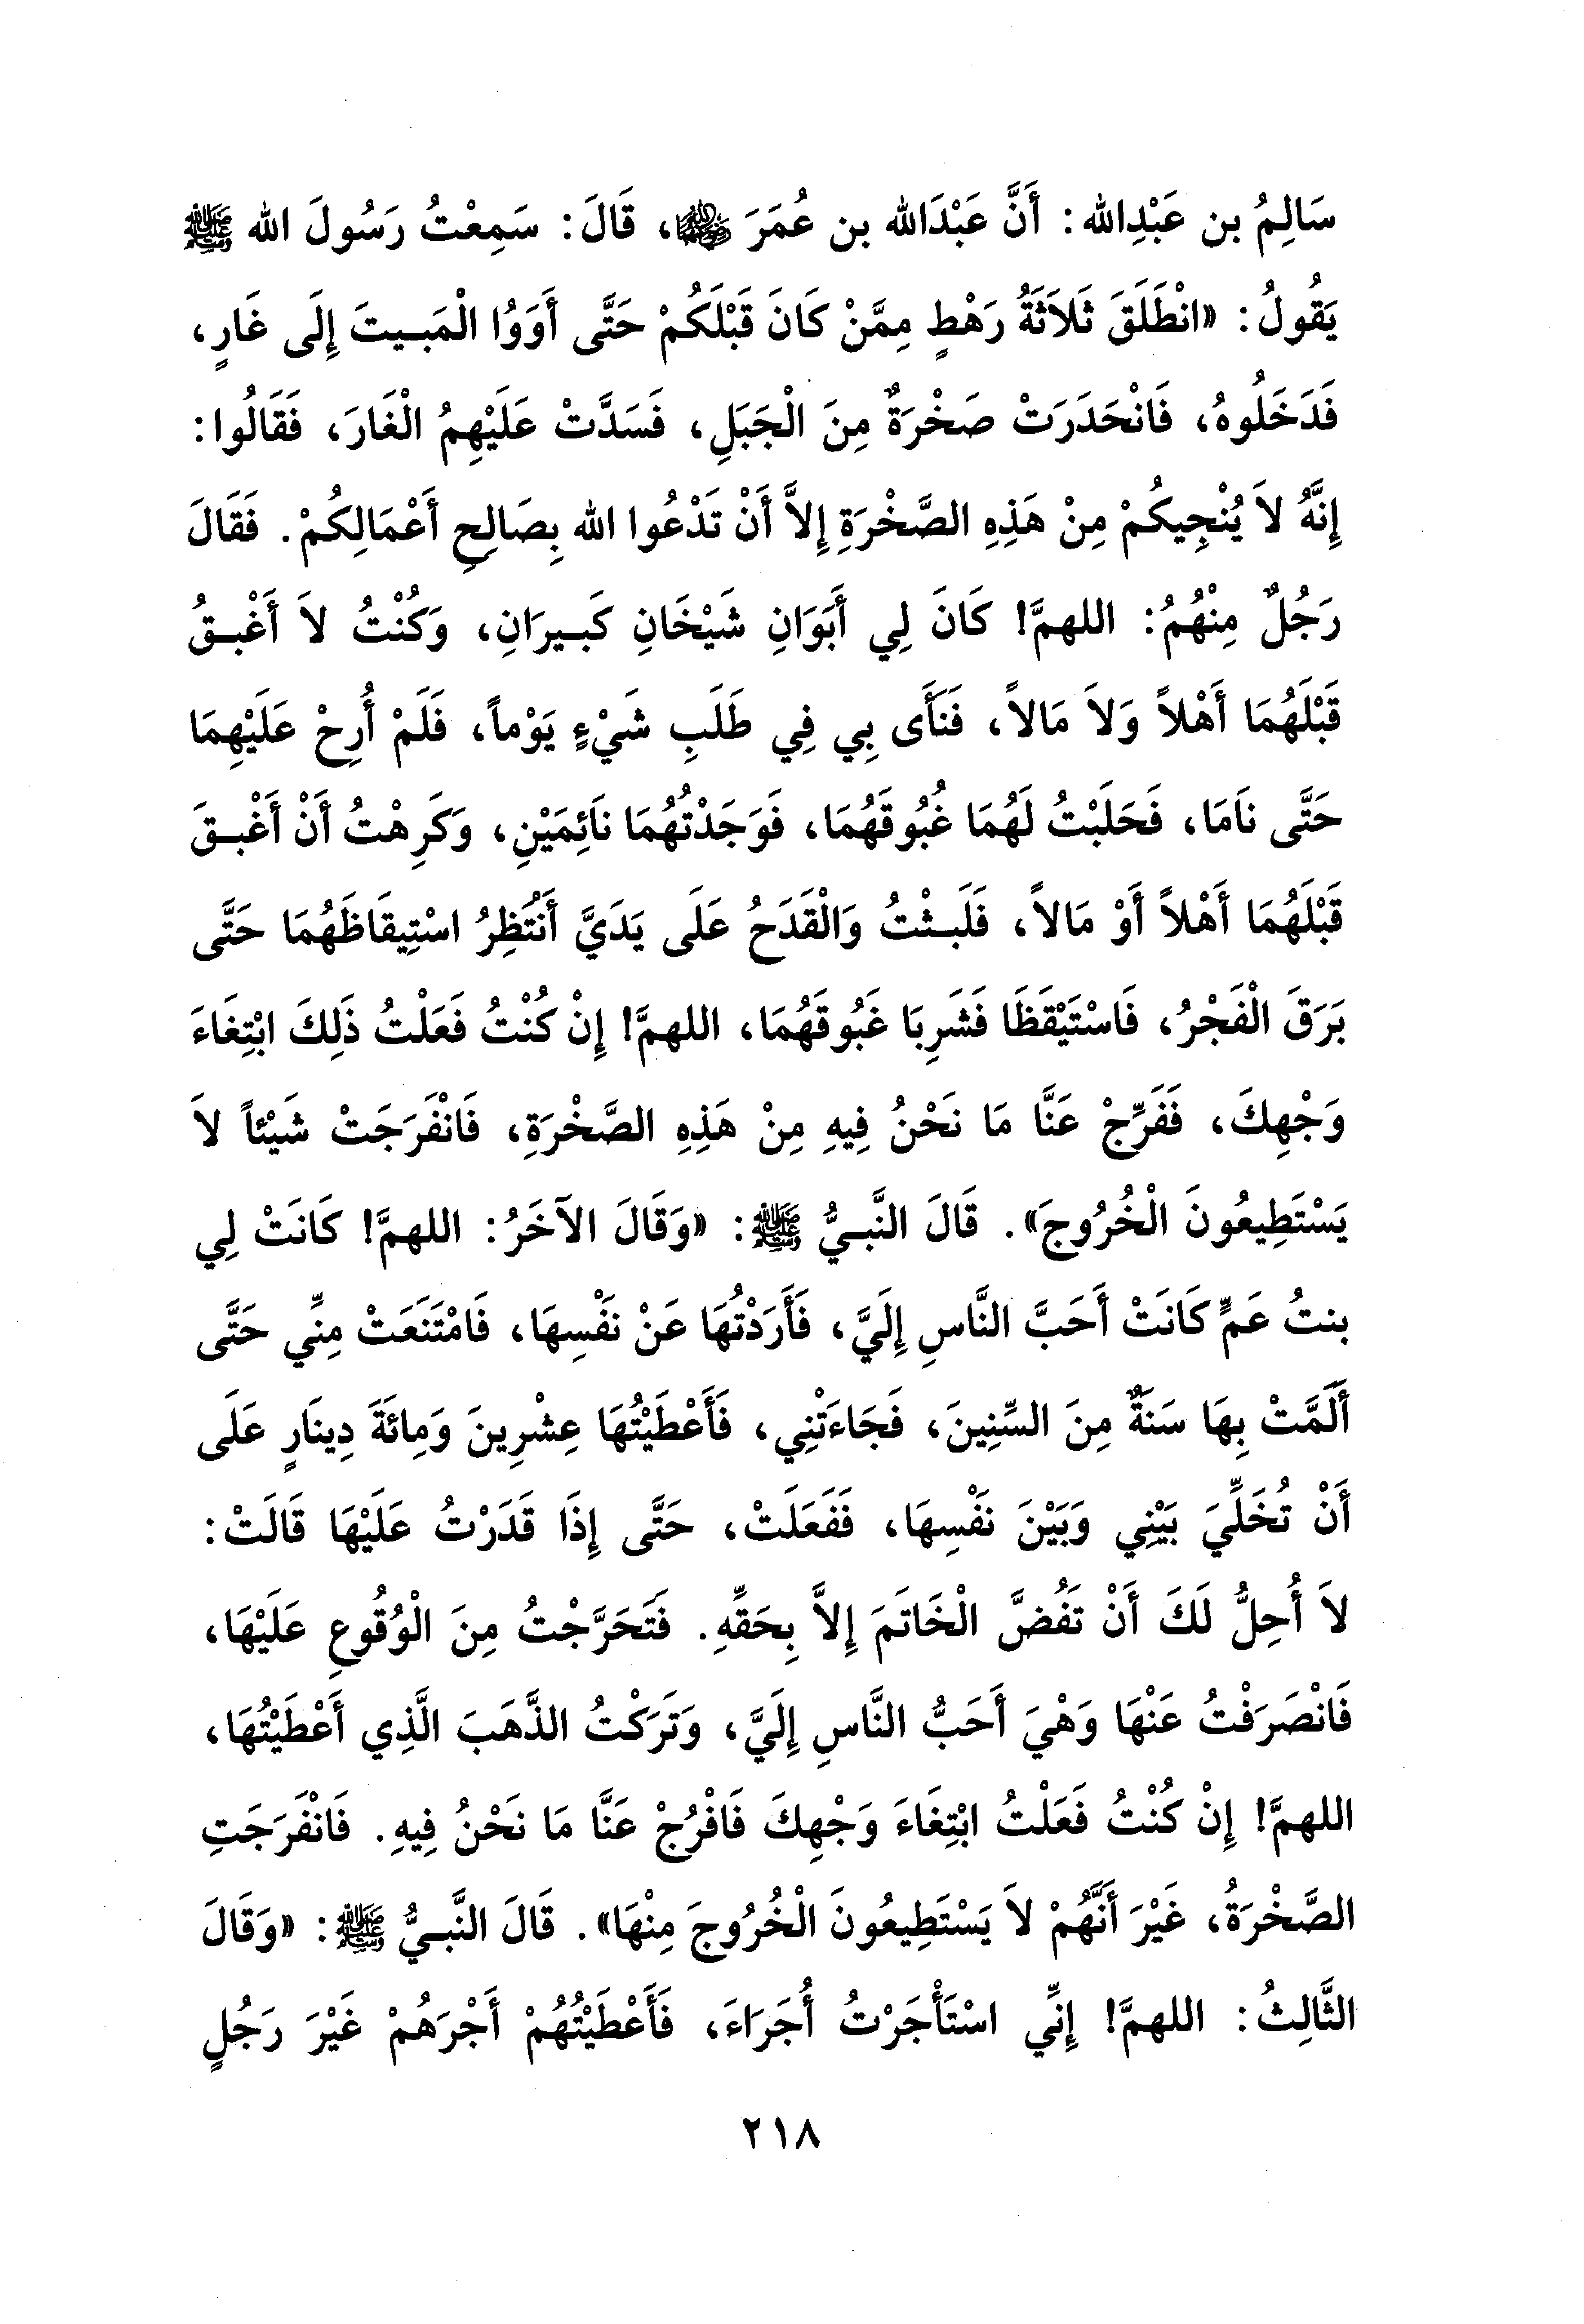 سَالِمُ بن عَبْدِالله: أَنَّ عَبْدَالله بن عُمَرَ رضي الله عنهما، قَالَ: سَمِعْتُ رَسُولَ الله ﷺ
يَقُولُ: «انْطَلَقَ ثَلاَثَةُ رَهْطٍ مِمَّنْ كَانَ قَبْلَكُمْ حَتَّى أَوَوُا الْمَبِيتَ إِلَى غَارٍ،
فَدَخَلُوهُ، فَانْحَدَرَتْ صَخْرَةٌ مِنَ الْجَبَلِ، فَسَدَّتْ عَلَيْهِمُ الْغَارَ، فَقَالُوا:
إِنَّهُ لاَ يُنْجِيكُمْ مِنْ هَذِهِ الصَّخْرَةِ إِلاَّ أَنْ تَدْعُوا الله بِصَالِحِ أَعْمَالِكُمْ. فَقَالَ
رَجُلٌ مِنْهُمُ: اللهمَّ! كَانَ لِي أَبَوَانِ شَيْخَانِ كَبِيرَانِ، وَكُنْتُ لاَ أَغْبِقُ
قَبْلَهُمَا أَهْلاً وَلاَ مَالاً، فَنَأَى بِي فِي طَلَبِ شَيْءٍ يَوْماً، فَلَمْ أُرِحْ عَلَيْهِمَا
حَتَّى نَامَا، فَحَلَبْتُ لَهُمَا غُبُوقَهُمَا، فَوَجَدْتُهُمَا نَائِمَيْنِ، وَكَرِهْتُ أَنْ أَغْبِقَ
قَبْلَهُمَا أَهْلاً أَوْ مَالاً، فَلَبِثْتُ وَالْقَدَحُ عَلَى يَدَيَّ أَنْتَظِرُ اسْتِيقَاظَهُمَا حَتَّى
بَرَقَ الْفَجْرُ، فَاسْتَيْقَظَا فَشَرِبَا غَبُوقَهُمَا، اللهمَّ! إِنْ كُنْتُ فَعَلْتُ ذَلِكَ ابْتِغَاءَ
وَجْهِكَ، فَفَرِّجْ عَنَّا مَا نَحْنُ فِيهِ مِنْ هَذِهِ الصَّخْرَةِ، فَانْفَرَجَتْ شَيْئاً لاَ
يَسْتَطِيعُونَ الْخُرُوجَ». قَالَ النَّبِيُّ ﷺ: «وَقَالَ الآخَرُ: اللهمَّ! كَانَتْ لِي
بنتُ عَمٍّ كَانَتْ أَحَبَّ النَّاسِ إِلَيَّ، فَأَرَدْتُهَا عَنْ نَفْسِهَا، فَامْتَنَعَتْ مِنِّي حَتَّى
أَلَمَّتْ بِهَا سَنَةٌ مِنَ السِّنِينَ، فَجَاءَتْنِي، فَأَعْطَيْتُهَا عِشْرِينَ وَمِائَةَ دِينَارٍ عَلَى
أَنْ تُخَلِّيَ بَيْنِي وَبَيْنَ نَفْسِهَا، فَفَعَلَتْ، حَتَّى إِذَا قَدَرْتُ عَلَيْهَا قَالَتْ:
لاَ أُحِلُّ لَكَ أَنْ تَفُضَّ الْخَاتَمَ إِلاَّ بِحَقِّهِ. فَتَحَرَّجْتُ مِنَ الْوُقُوعِ عَلَيْهَا،
فَانْصَرَفْتُ عَنْهَا وَهْيَ أَحَبُّ النَّاسِ إِلَيَّ، وَتَرَكْتُ الذَّهَبَ الَّذِي أَعْطَيْتُهَا،
اللهمَّ! إِنْ كُنْتُ فَعَلْتُ ابْتِغَاءَ وَجْهِكَ فَافْرُجْ عَنَّا مَا نَحْنُ فِيهِ. فَانْفَرَجَتِ
الصَّخْرَةُ، غَيْرَ أَنَّهُمْ لاَ يَسْتَطِيعُونَ الْخُرُوجَ مِنْهَا». قَالَ النَّبِيُّ ﷺ: «وَقَالَ
الثَّالِثُ: اللهمَّ! إِنِّي اسْتَأْجَرْتُ أُجَرَاءَ، فَأَعْطَيْتُهُمْ أَجْرَهُمْ غَيْرَ رَجُلٍ
٢١٨